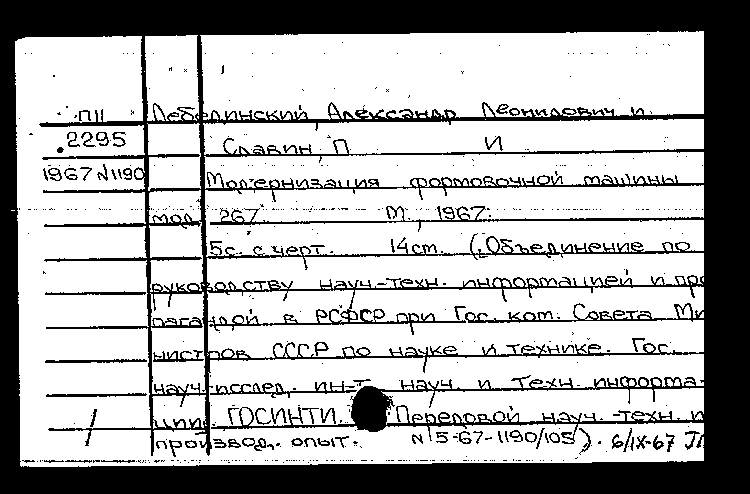 П11 Лебединский, Александр Леонидович и
2295 Славин, П И
1967 N1190 Модернизация формовочной машины
мод. 267. М., 1967.
5с. с черт. 14см. (Объединение по
руководству науч.-техн. информацией и про
пагандой в РСФСР при Гос. ком. Совета Ми
нистров СССР по науке и технике. Гос.
науч.-исслед. ин-т науч. и техн. информа-
ции. ГОСИНТИ. Передовой науч.-техн. и
производ. опыт. N 5-67-1190/105). 6/IX-67